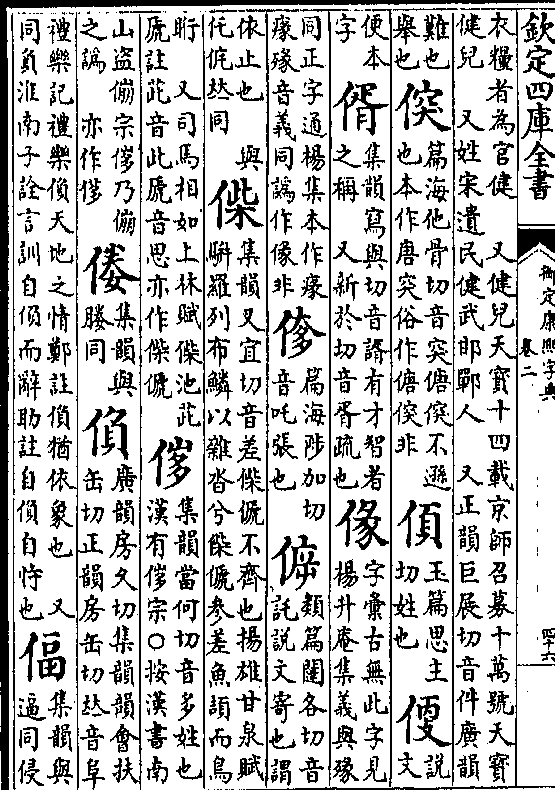 欽定四庫全書
御定康熙字典
卷二
四十六
衣糧者為官健　又健兒天寶十四載京師召募十萬號天寶
健兒　又姓宋遺民健武邯鄲人　又正韻巨展切音件廣韻
難也
舉也
㑌
篇海他骨切音突傏㑌不遜
也本作唐突俗作傏㑌非
玉篇思主
切姓也
說
文
便本
字
偦
集韻寫與切音諝有才智者
之稱　又新於切音胥疏也
字彙古無此字見
楊升庵集義與豫
同正字通楊集本作㾿
㾿豫音義同譌作像非
篇海陟加切
音吒張也
類篇闥各切音
託說文寄也謂
依止也　與
侂侂𠀤同
傑
集韻叉宜切音差傑傂不齊也揚雄甘泉賦
駢羅列布鱗以雜沓兮傑傂參差魚頡而鳥
䀪　又司馬相如上林賦傑池茈
虒註茈音此虒音思亦作傑傂
集韻當何切音多姓也
漢有㑩宗○按漢書南
山盜傰宗㑩乃傰
之譌　亦作㑩
集韻與
媵同
偩
廣韻房久切集韻韻會扶
缶切正韻房缶切𠀤音阜
禮樂記禮樂偩天地之情鄭註偩猶依象也　又
同負淮南子詮言訓自偩而辭助註自偩自恃也
偪
集韻與
逼同侵